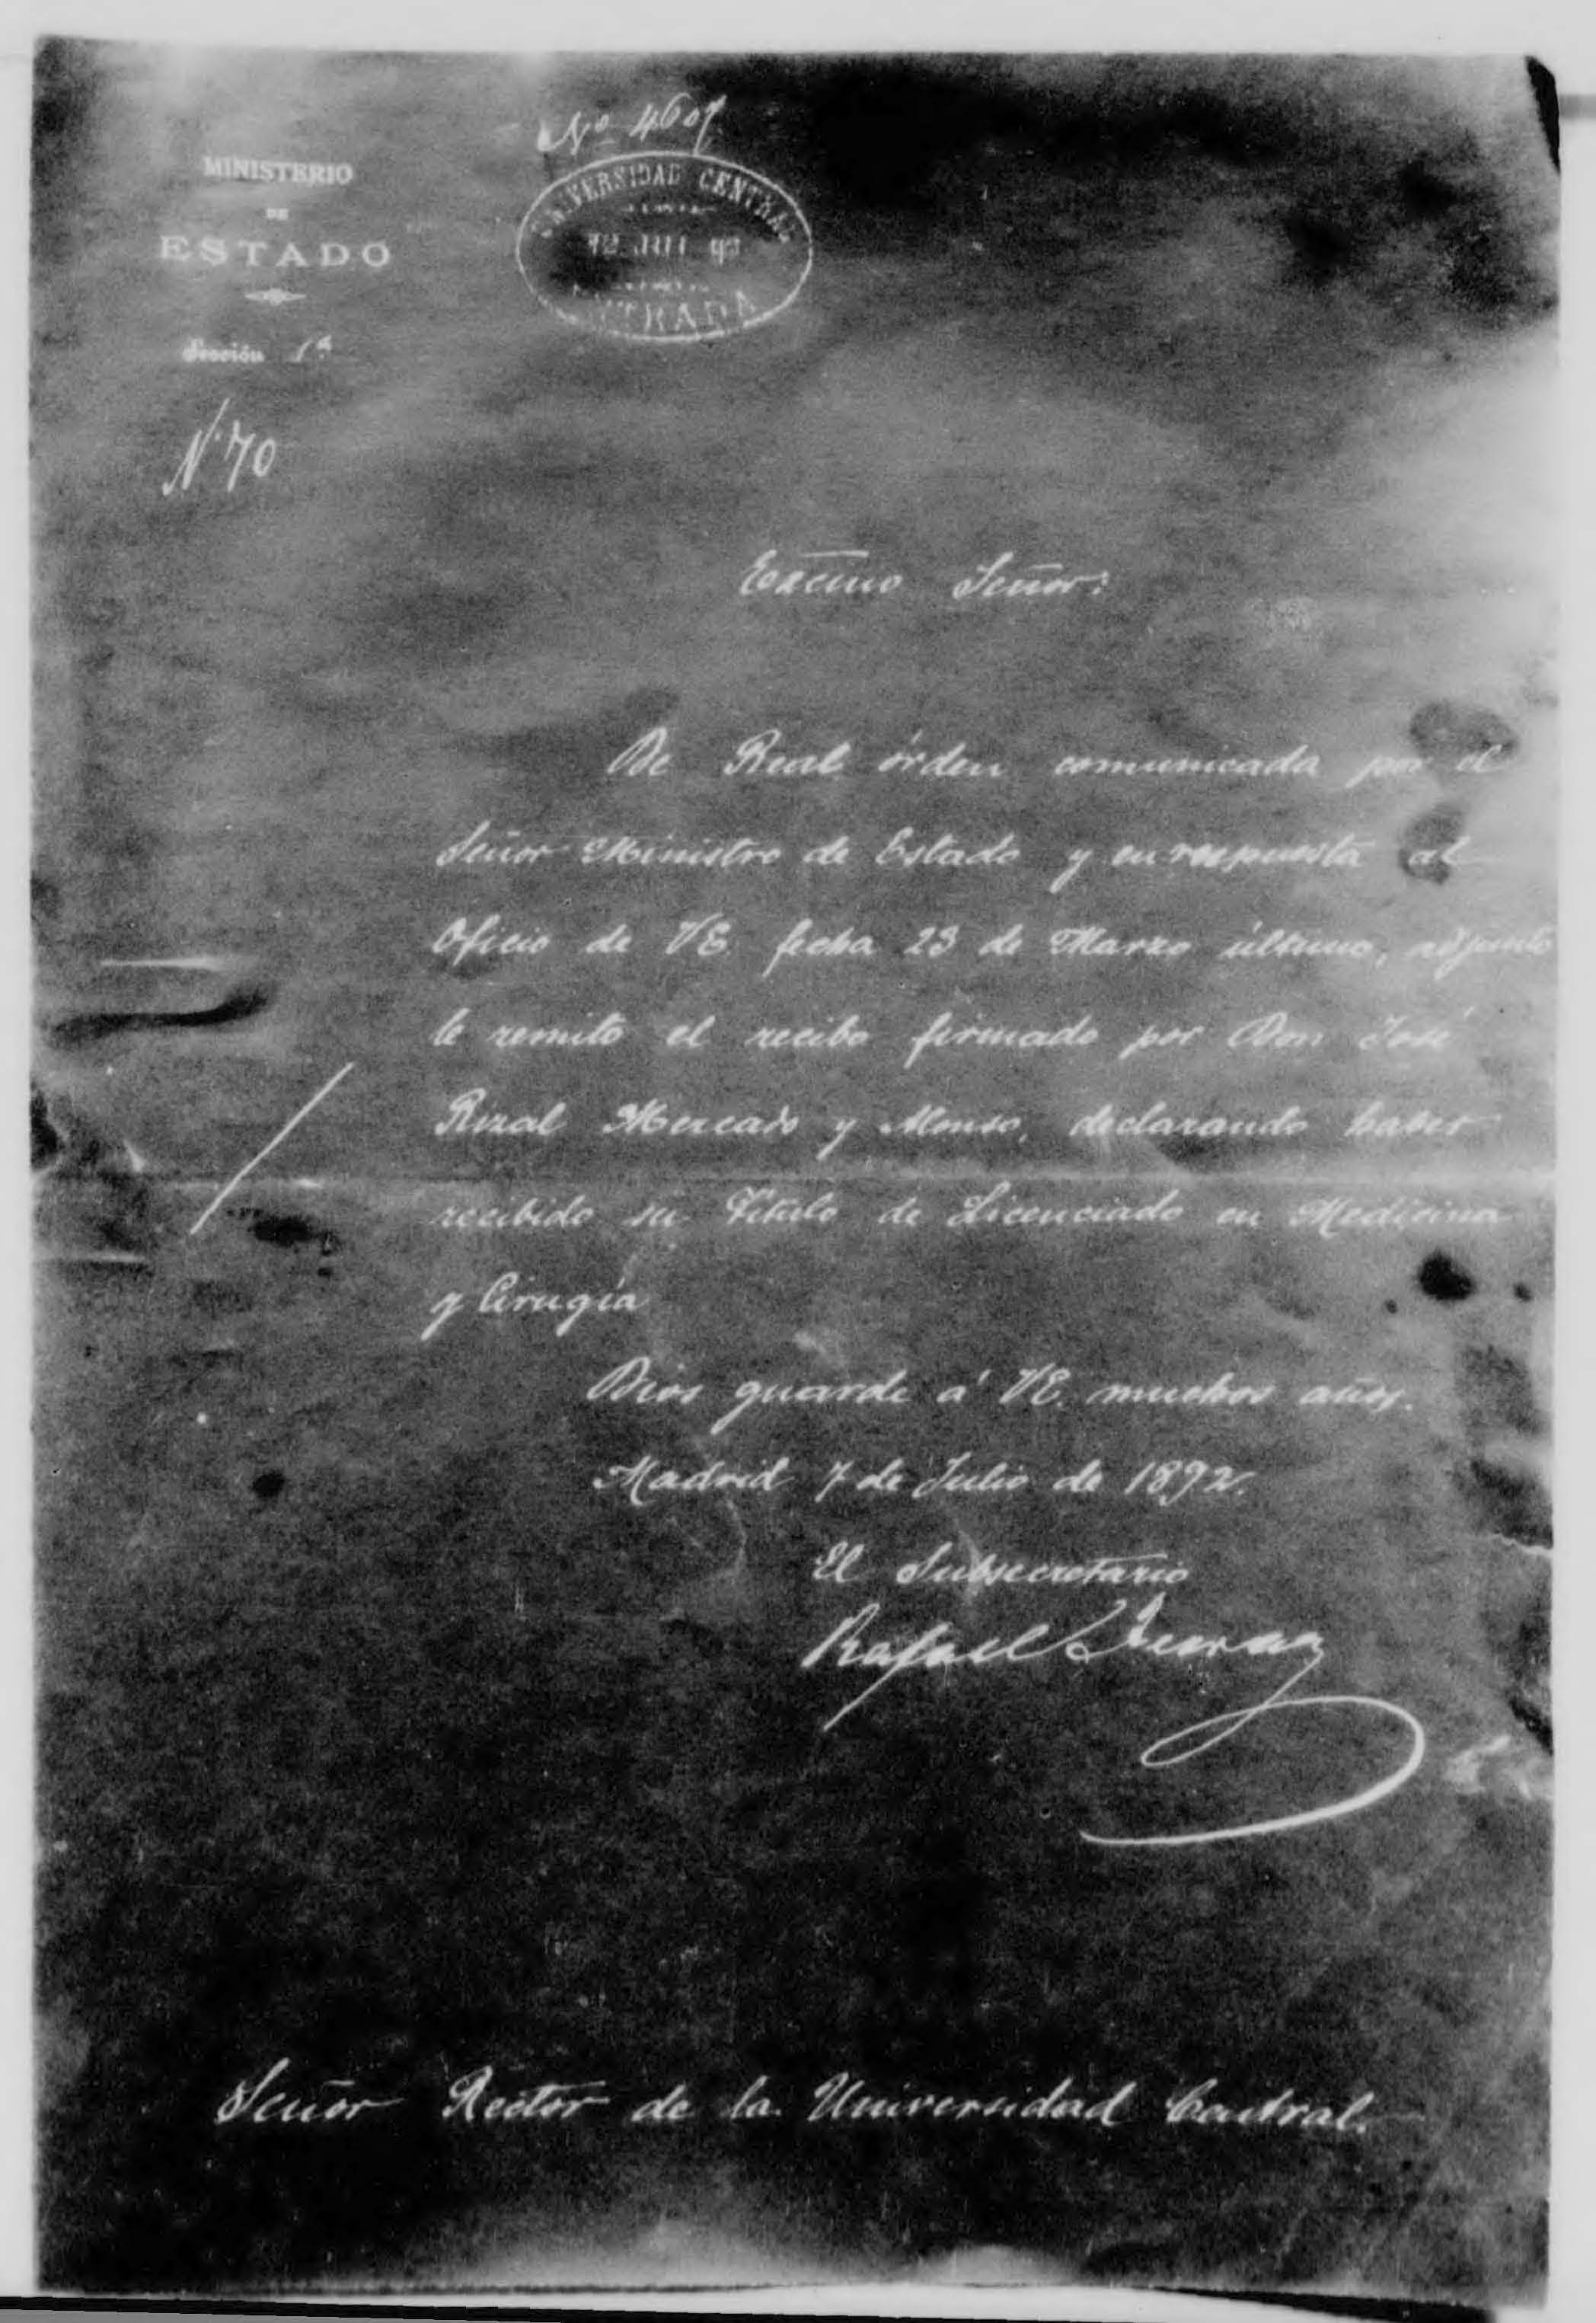 Nº 4607
MINISTERIO
DE
ESTADO
Sección 1ª
UNIVERSIDAD CENTRAL
12 JUL 92
ENTRADA
N. 70
Excmo Señor:
De Real órden comunicada por el
Señor Ministro de Estado y en respuesta al
Oficio de VE. fecha 23 de Marzo último, adjunto
le remito el recibo firmado por Don José
Rizal Mercado y Alonso, declarando haber
recibido su Título de Licenciado en Medicina
y Cirugía
Dios guarde á VE. muchos años.
Madrid 7 de Julio de 1892.
El Subsecretario
Rafael
Señor Rector de la Universidad Central.